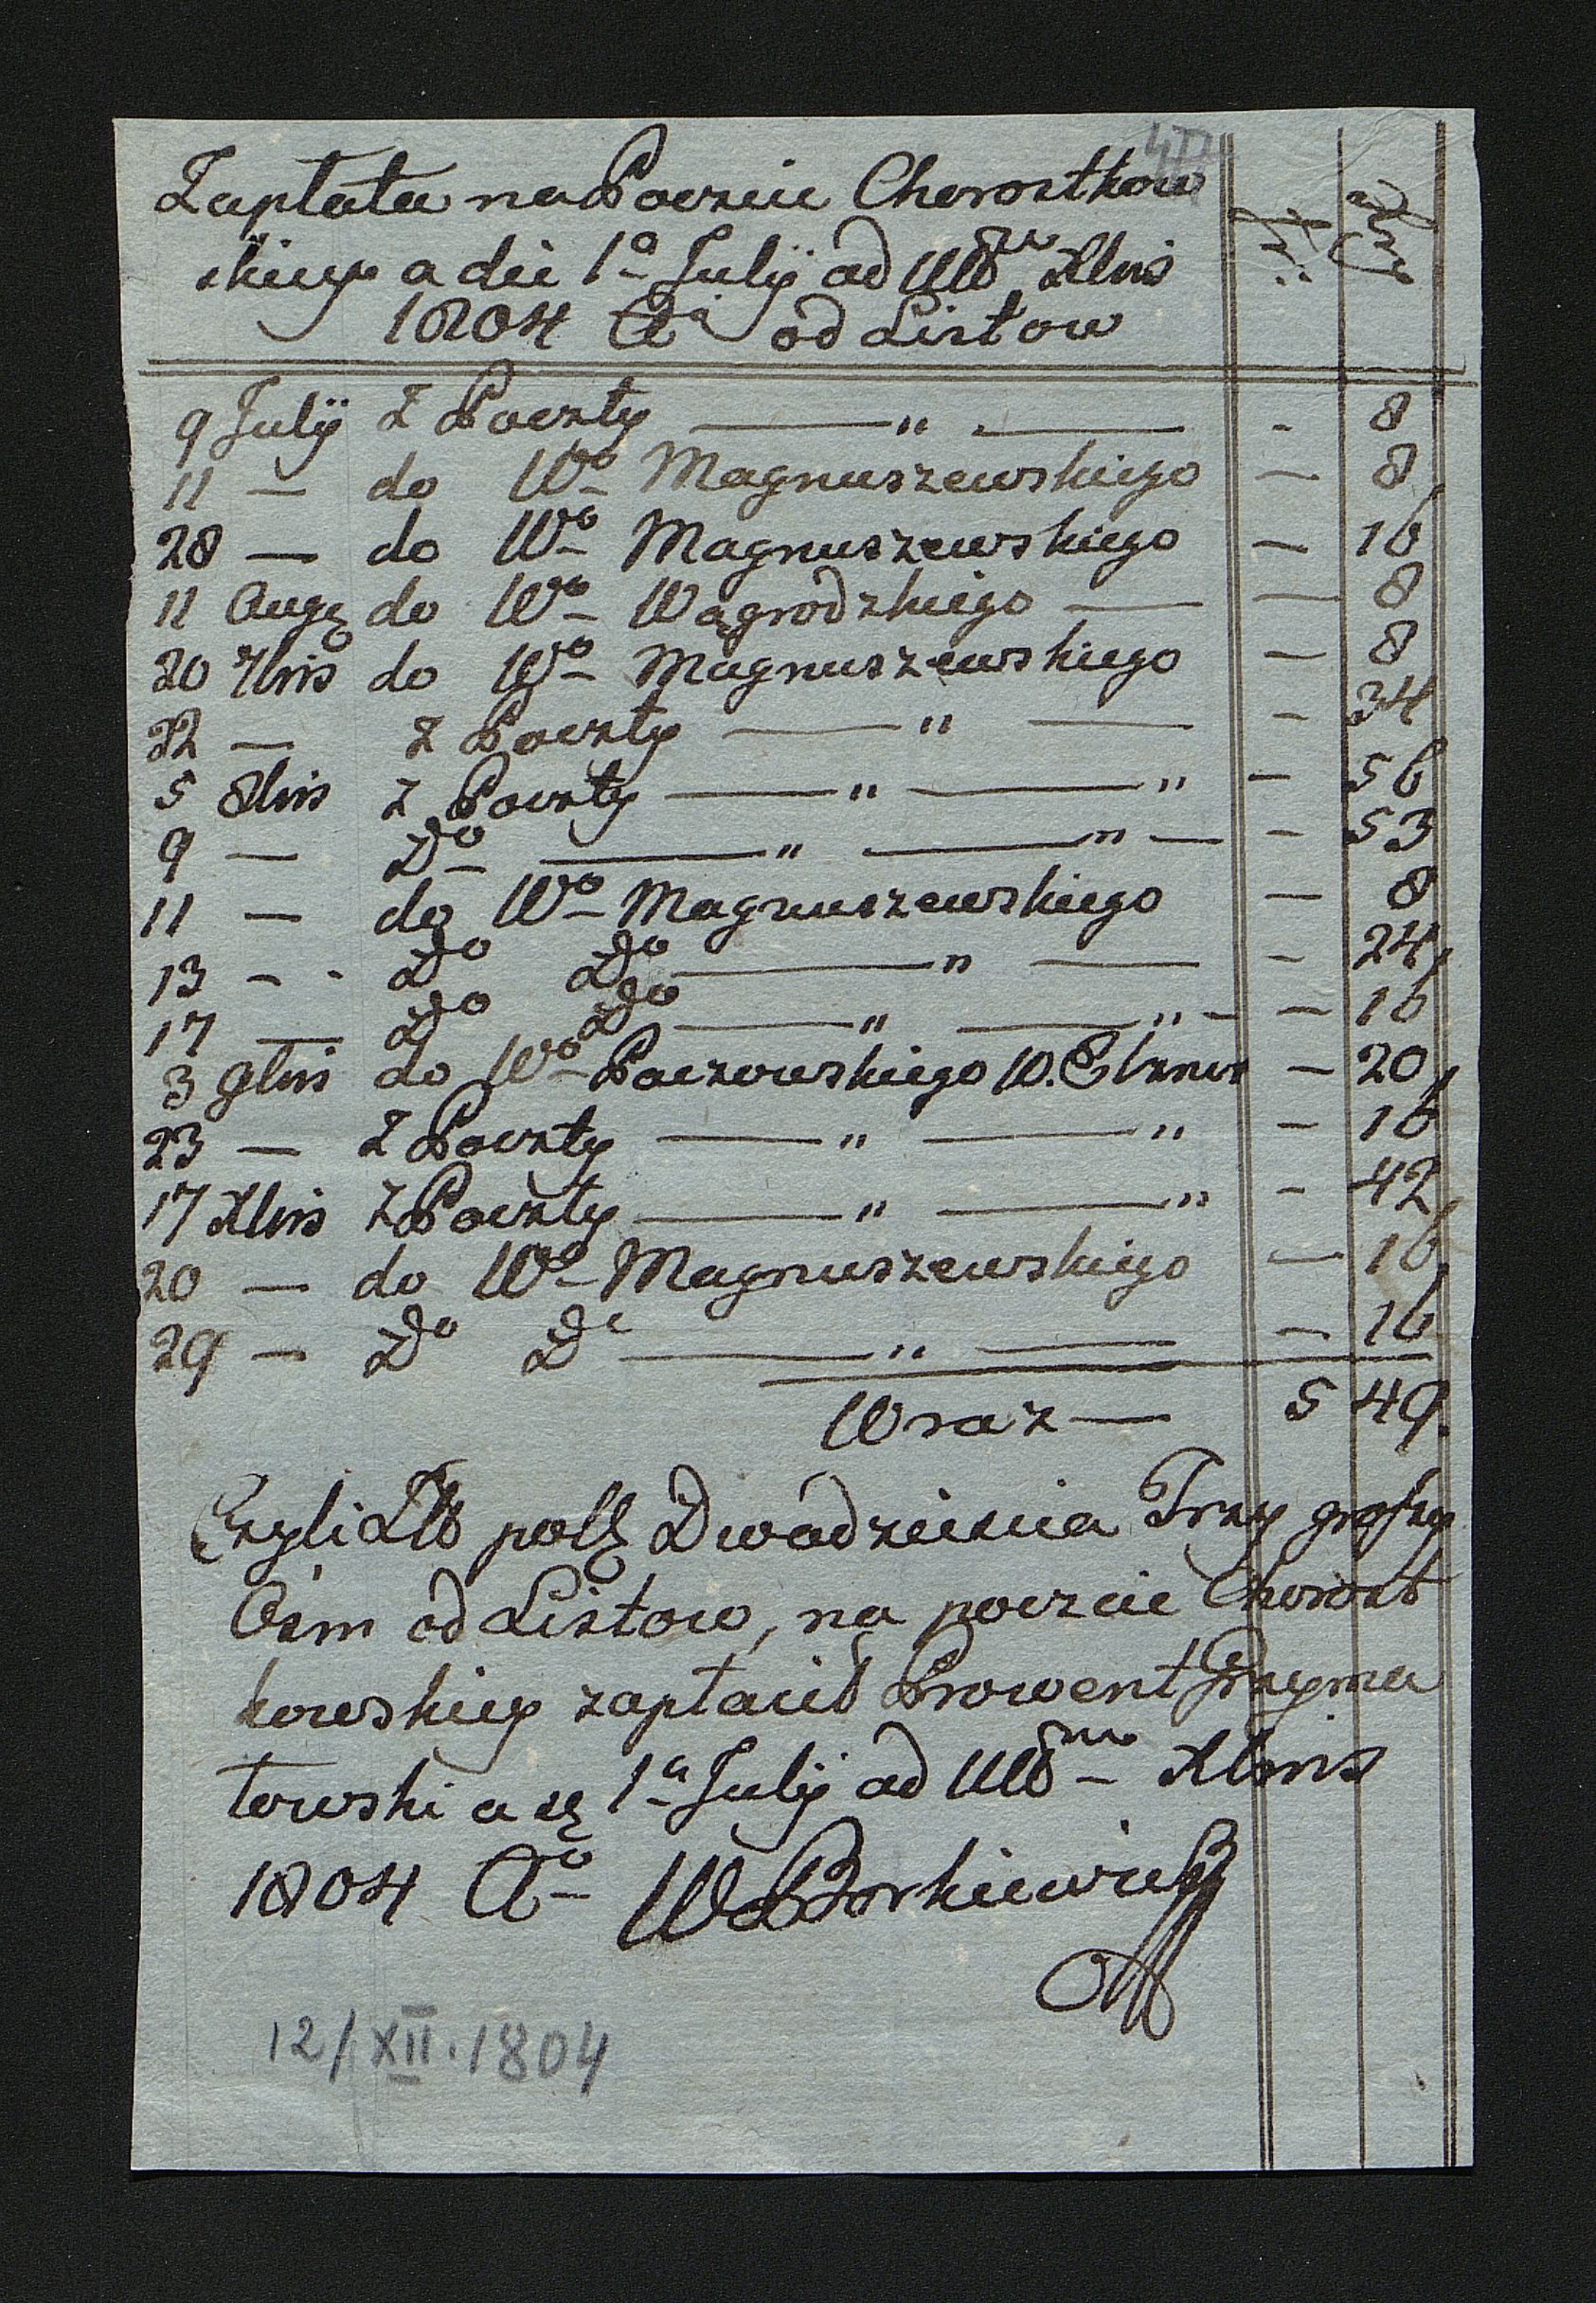 Zapłata na Poczcie Chorostkow
skiey a die 1ᵃ Julÿ ad Ultᵐᵃ Xbris
1804 Aⁱ od Listow
9 Julÿ Z Poczty — " — - 8
11 — do Wᵒ Magnuszewskiego — 8
28 — do Wᵒ Magnuszewskiego — 16
11 Augę do Wᵒ Wągrodzkiego — — 8
20 7bris do Wᵒ Magnuszewskiego — 8
22 — z Poczty — " — - 34
5 8bris z Poczty — " — " — 56
9 — Dᵒ — " — " — - 53
11 — do Wᵒ Magnuszewskiego — 8
13 - - Dᵒ Dᵒ — " — - 24
17 — Dᵒ Dᵒ — " — " - - 16
3 9bris do Wᵒ Paczowskiego W. — 20
23 — Z Poczty — " — " - 16
17 Xbris Z Poczty — " — " - 42
20 — do Wᵒ Magnuszewskiego — 16
29 — Dᵒ Dᵒ — " — - 16
Wraz — 5 49.
Czyli Złł polſ Dwadziescia Trzy groſzy
Osm od Listow, na poczcie Chorost
kowskiey zapłacił Prowent Grzyma
łowski a 1ᵃ Julÿ ad Ultᵐᵃ Xbris
1804 Aᵒ W Borkiewicz
12/XII.1804